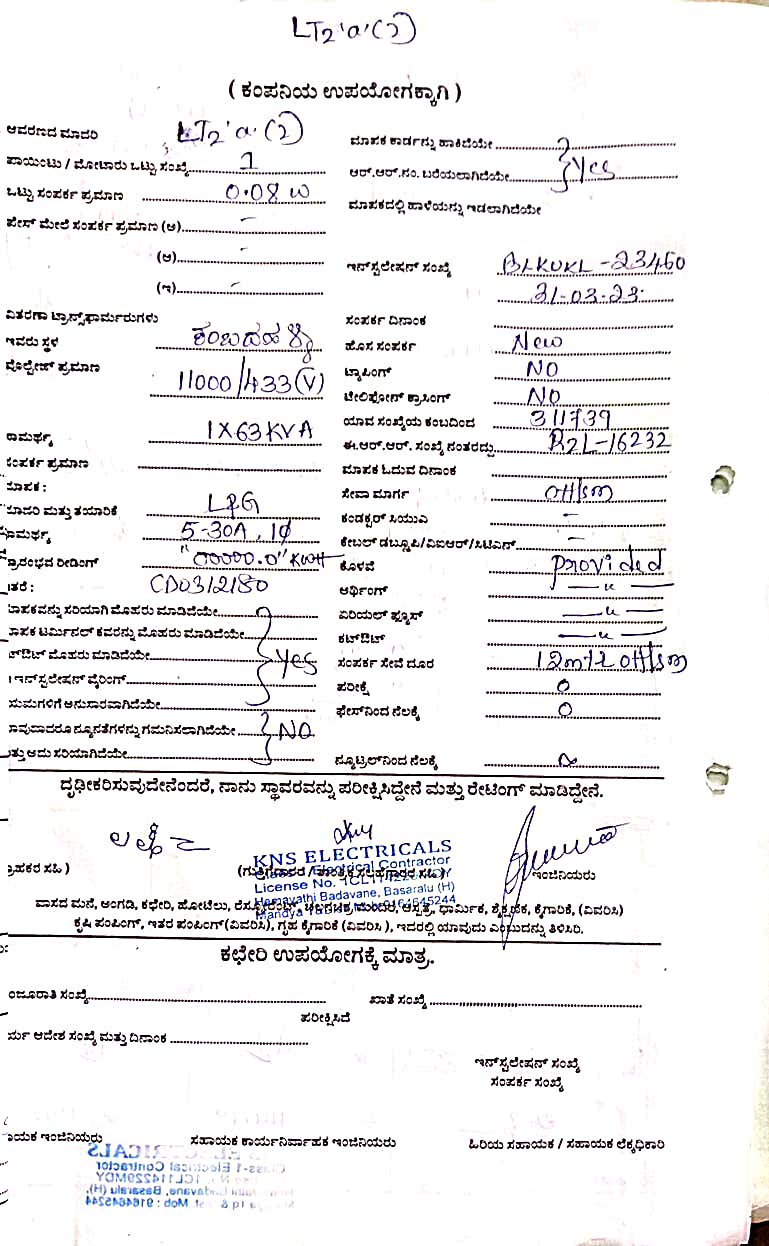 LT2'a'(2)
( ಕಂಪನಿಯ ಉಪಯೋಗಕ್ಕಾಗಿ )
ಆವರಣದ ಮಾದರಿ LT2'a'(2)
ಪಾಯಿಂಟು / ಮೋಟಾರು ಒಟ್ಟು ಸಂಖ್ಯೆ 1
ಒಟ್ಟು ಸಂಪರ್ಕ ಪ್ರಮಾಣ 0.08 W
ಫೇಸ್ ಮೇಲೆ ಸಂಪರ್ಕ ಪ್ರಮಾಣ (ಅ) -
(ಆ) -
(ಇ) -
ವಿತರಣಾ ಟ್ರಾನ್ಸ್‌ಫಾರ್ಮರುಗಳು
ಇವರು ಸ್ಥಳ ಕಂಬದಹಳ್ಳಿ
ವೋಲ್ಟೇಜ್ ಪ್ರಮಾಣ 11000/433(V)
ಸಾಮರ್ಥ್ಯ 1X63KVA
ಸಂಪರ್ಕ ಪ್ರಮಾಣ
ಮಾಪಕ :
ಮಾದರಿ ಮತ್ತು ತಯಾರಿಕೆ L&G
ಸಾಮರ್ಥ್ಯ 5-30A, 1φ
ಪ್ರಾರಂಭದ ರೀಡಿಂಗ್ "00000.0" KWH
ಇತರೆ : CD0312180
ಮಾಪಕವನ್ನು ಸರಿಯಾಗಿ ಮೊಹರು ಮಾಡಿದೆಯೇ
ಮಾಪಕ ಟರ್ಮಿನಲ್ ಕವರನ್ನು ಮೊಹರು ಮಾಡಿದೆಯೇ
ಕಟ್‌ಔಟ್ ಮೊಹರು ಮಾಡಿದೆಯೇ Yes
ಇನ್‌ಸ್ಟಲೇಷನ್ ವೈರಿಂಗ್
ನಿಯಮಗಳಿಗೆ ಅನುಸಾರವಾಗಿದೆಯೇ
ಯಾವುದಾದರೂ ನ್ಯೂನತೆಗಳನ್ನು ಗಮನಿಸಲಾಗಿದೆಯೇ NO
ಮತ್ತು ಅದು ಸರಿಯಾಗಿದೆಯೇ
ಮಾಪಕ ಕಾರ್ಡನ್ನು ಹಾಕಿದೆಯೇ
ಆರ್.ಆರ್.ನಂ. ಬರೆಯಲಾಗಿದೆಯೇ Yes
ಮಾಪಕದಲ್ಲಿ ಹಾಳೆಯನ್ನು ಇಡಲಾಗಿದೆಯೇ
ಇನ್‌ಸ್ಟಲೇಷನ್ ಸಂಖ್ಯೆ BLKUKL-23460
31-03-23
ಸಂಪರ್ಕ ದಿನಾಂಕ
ಹೊಸ ಸಂಪರ್ಕ New
ಟ್ಯಾಪಿಂಗ್ NO
ಟೆಲಿಫೋನ್ ಕ್ರಾಸಿಂಗ್ NO
ಯಾವ ಸಂಖ್ಯೆಯ ಕಂಬದಿಂದ 311739
ಈ.ಆರ್.ಆರ್. ಸಂಖ್ಯೆ ನಂತರದ್ದು R2L-16232
ಮಾಪಕ ಓದುವ ದಿನಾಂಕ
ಸೇವಾ ಮಾರ್ಗ OH/sm
ಕಂಡಕ್ಟರ್ ಸಿಯುವಿ -
ಕೇಬಲ್ ಡಬ್ಲ್ಯೂಪಿ/ವಿಐಆರ್/ಸಿಟಿಎನ್ -
ಕೊಳವೆ provided
ಅರ್ಥಿಂಗ್ — " —
ಏರಿಯಲ್ ಫ್ಯೂಸ್ — " —
ಕಟ್‌ಔಟ್ — " —
ಸಂಪರ್ಕ ಸೇವೆ ದೂರ OH/sm
ಪರೀಕ್ಷೆ 0
ಫೇಸ್‌ನಿಂದ ನೆಲಕ್ಕೆ 0
ನ್ಯೂಟ್ರಲ್‌ನಿಂದ ನೆಲಕ್ಕೆ
ದೃಢೀಕರಿಸುವುದೇನೆಂದರೆ, ನಾನು ಸ್ಥಾವರವನ್ನು ಪರೀಕ್ಷಿಸಿದ್ದೇನೆ ಮತ್ತು ರೇಟಿಂಗ್ ಮಾಡಿದ್ದೇನೆ.
KNS ELECTRICALS
Class-1 Electrical Contractor
License No. 1CL114229MDY
Hemavathi Badavane, Basaralu (H)
Mandya Tq & Dist Mob : 9164645244
ಗ್ರಾಹಕರ ಸಹಿ )
(ಗುತ್ತಿಗೆದಾರರ / ತಾಂತ್ರಿಕ ಸಲಹೆಗಾರರ ಸಹಿ)
ಇಂಜಿನಿಯರು
ವಾಸದ ಮನೆ, ಅಂಗಡಿ, ಕಛೇರಿ, ಹೋಟೆಲು, ರೆಸ್ಟೋರೆಂಟ್, ಚಲನಚಿತ್ರ ಮಂದಿರ, ಆಸ್ಪತ್ರೆ, ಧಾರ್ಮಿಕ, ಶೈಕ್ಷಣಿಕ, ಕೈಗಾರಿಕೆ, (ವಿವರಿಸಿ)
ಕೃಷಿ ಪಂಪಿಂಗ್, ಇತರ ಪಂಪಿಂಗ್(ವಿವರಿಸಿ), ಗೃಹ ಕೈಗಾರಿಕೆ (ವಿವರಿಸಿ ), ಇದರಲ್ಲಿ ಯಾವುದು ಎಂಬುದನ್ನು ತಿಳಿಸಿರಿ.
ಕಛೇರಿ ಉಪಯೋಗಕ್ಕೆ ಮಾತ್ರ.
ಮಂಜೂರಾತಿ ಸಂಖ್ಯೆ
ಖಾತೆ ಸಂಖ್ಯೆ
ಪರೀಕ್ಷಿಸಿದೆ
ಕಾರ್ಯ ಆದೇಶ ಸಂಖ್ಯೆ ಮತ್ತು ದಿನಾಂಕ
ಇನ್‌ಸ್ಟಲೇಷನ್ ಸಂಖ್ಯೆ
ಸಂಪರ್ಕ ಸಂಖ್ಯೆ
ಸಹಾಯಕ ಇಂಜಿನಿಯರು
ಸಹಾಯಕ ಕಾರ್ಯನಿರ್ವಾಹಕ ಇಂಜಿನಿಯರು
ಹಿರಿಯ ಸಹಾಯಕ / ಸಹಾಯಕ ಲೆಕ್ಕಧಿಕಾರಿ